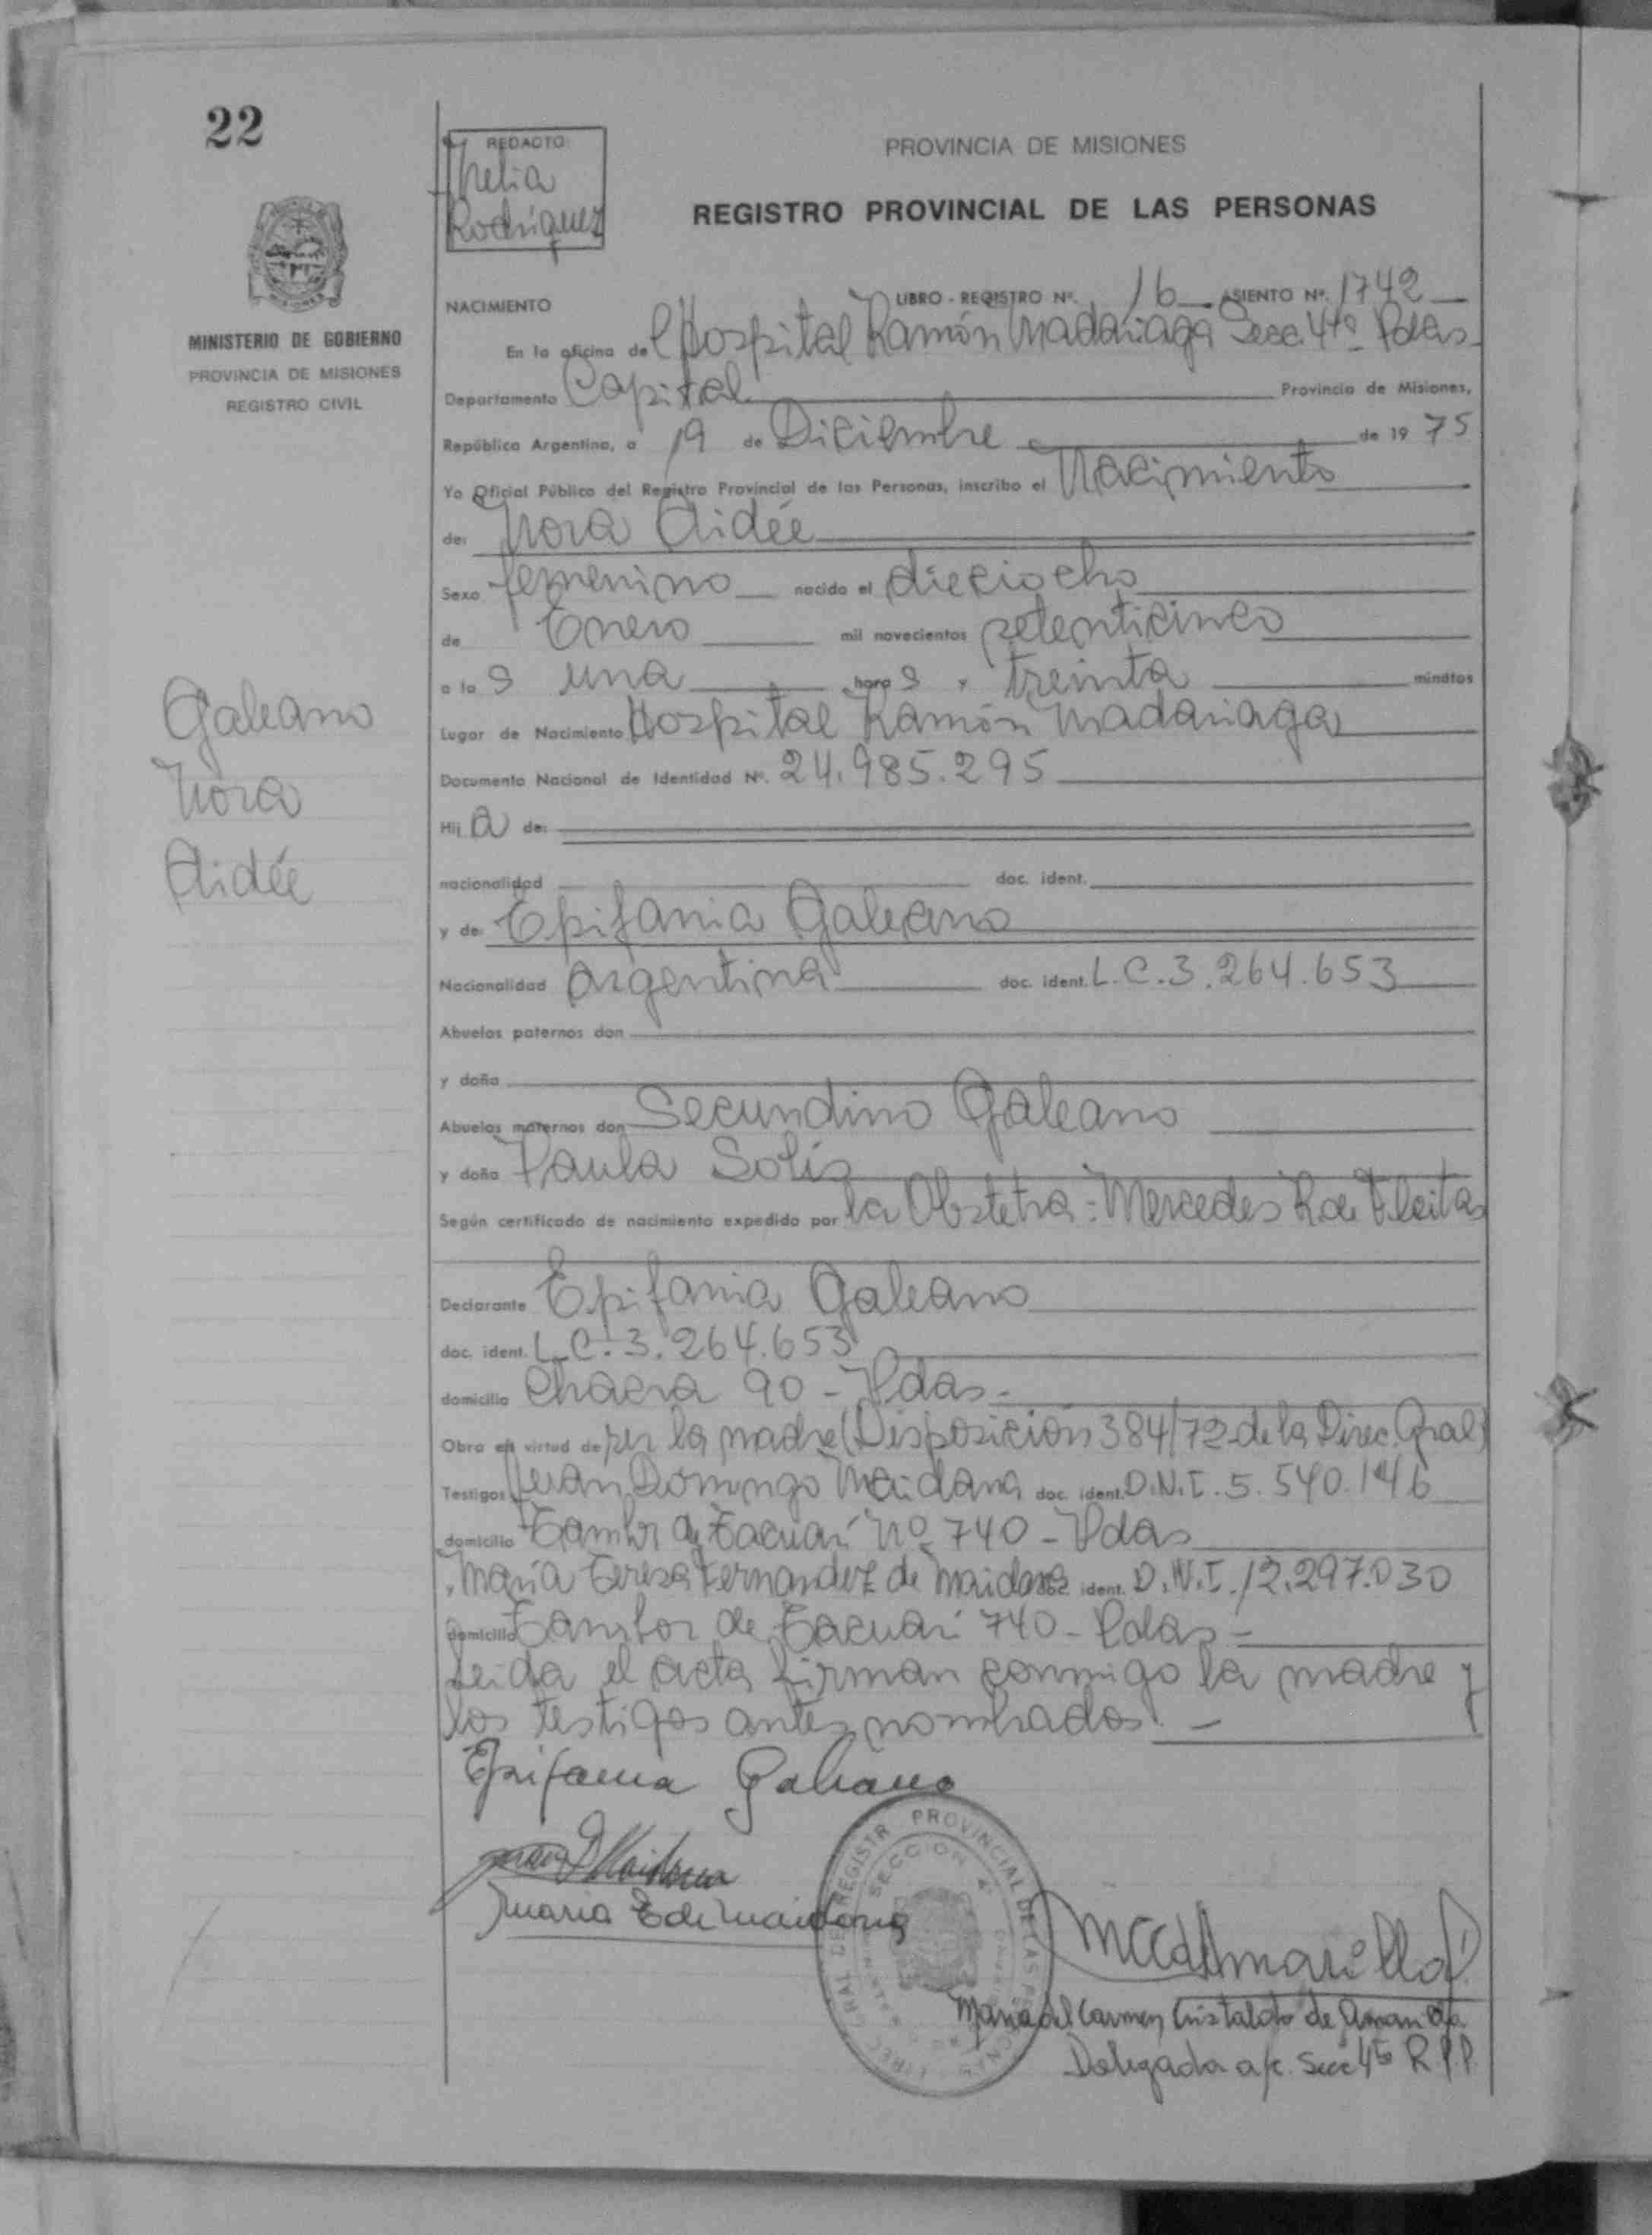 22
REDACTO:
Thelia
Rodríguez
PROVINCIA DE MISIONES
REGISTRO PROVINCIAL DE LAS PERSONAS
MINISTERIO DE GOBIERNO
PROVINCIA DE MISIONES
REGISTRO CIVIL
NACIMIENTO LIBRO - REGISTRO Nº. 16 ASIENTO Nº. 1742
En la oficina del Hospital Ramón Madariaga Secc. 4ta Pdas
Departamento Capital Provincia de Misiones,
República Argentina, a 19 de Diciembre de 1975
Yo Oficial Público del Registro Provincial de las Personas, inscribo el Nacimiento
de: Nora Aidée
Sexo femenino nacido el dieciocho
de Enero mil novecientos setenticinco
a las una horas y treinta minutos
Lugar de Nacimiento Hospital Ramón Madariaga
Documento Nacional de Identidad Nº. 24.985.295
Galeano
Nora
Aidée
Hija de:
nacionalidad doc. ident.
y de Epifania Galeano
Nacionalidad Argentina doc. ident. L.C.3.264.653
Abuelos paternos don
y doña
Abuelos maternos don Secundino Galeano
y doña Paula Solís
Según certificado de nacimiento expedido por la Obstetra: Mercedes R. de Fleitas
Declarante Epifania Galeano
doc. ident. L.C. 3.264.653
domicilio Chacra 90 - Pdas.
Obra en virtud de ser la madre (Disposición 384/72 de la Direc. Gral)
Testigos Juan Domingo Maidana doc. ident. D.N.I. 5.540.146
domicilio Tambor de Tacuarí Nº 740 - Pdas
y María Teresa Fernandez de Maidana doc. ident. D.N.I. 12.297.030
domicilio Tambor de Tacuarí 740 - Pdas -
Leida el acta firman conmigo la madre y
los testigos antes nombrados. -
Epifania Galeano
Juan D Maidana
Maria T de Maidana
DIREC. GRAL. DEL REGISTR. PROVINCIAL DE LAS PERSONAS
SECCION 4
MCCdAmarilla
Maria del Carmen Cristaldo de Amarilla
Delegada a/c. Secc 4ta R.P.P.